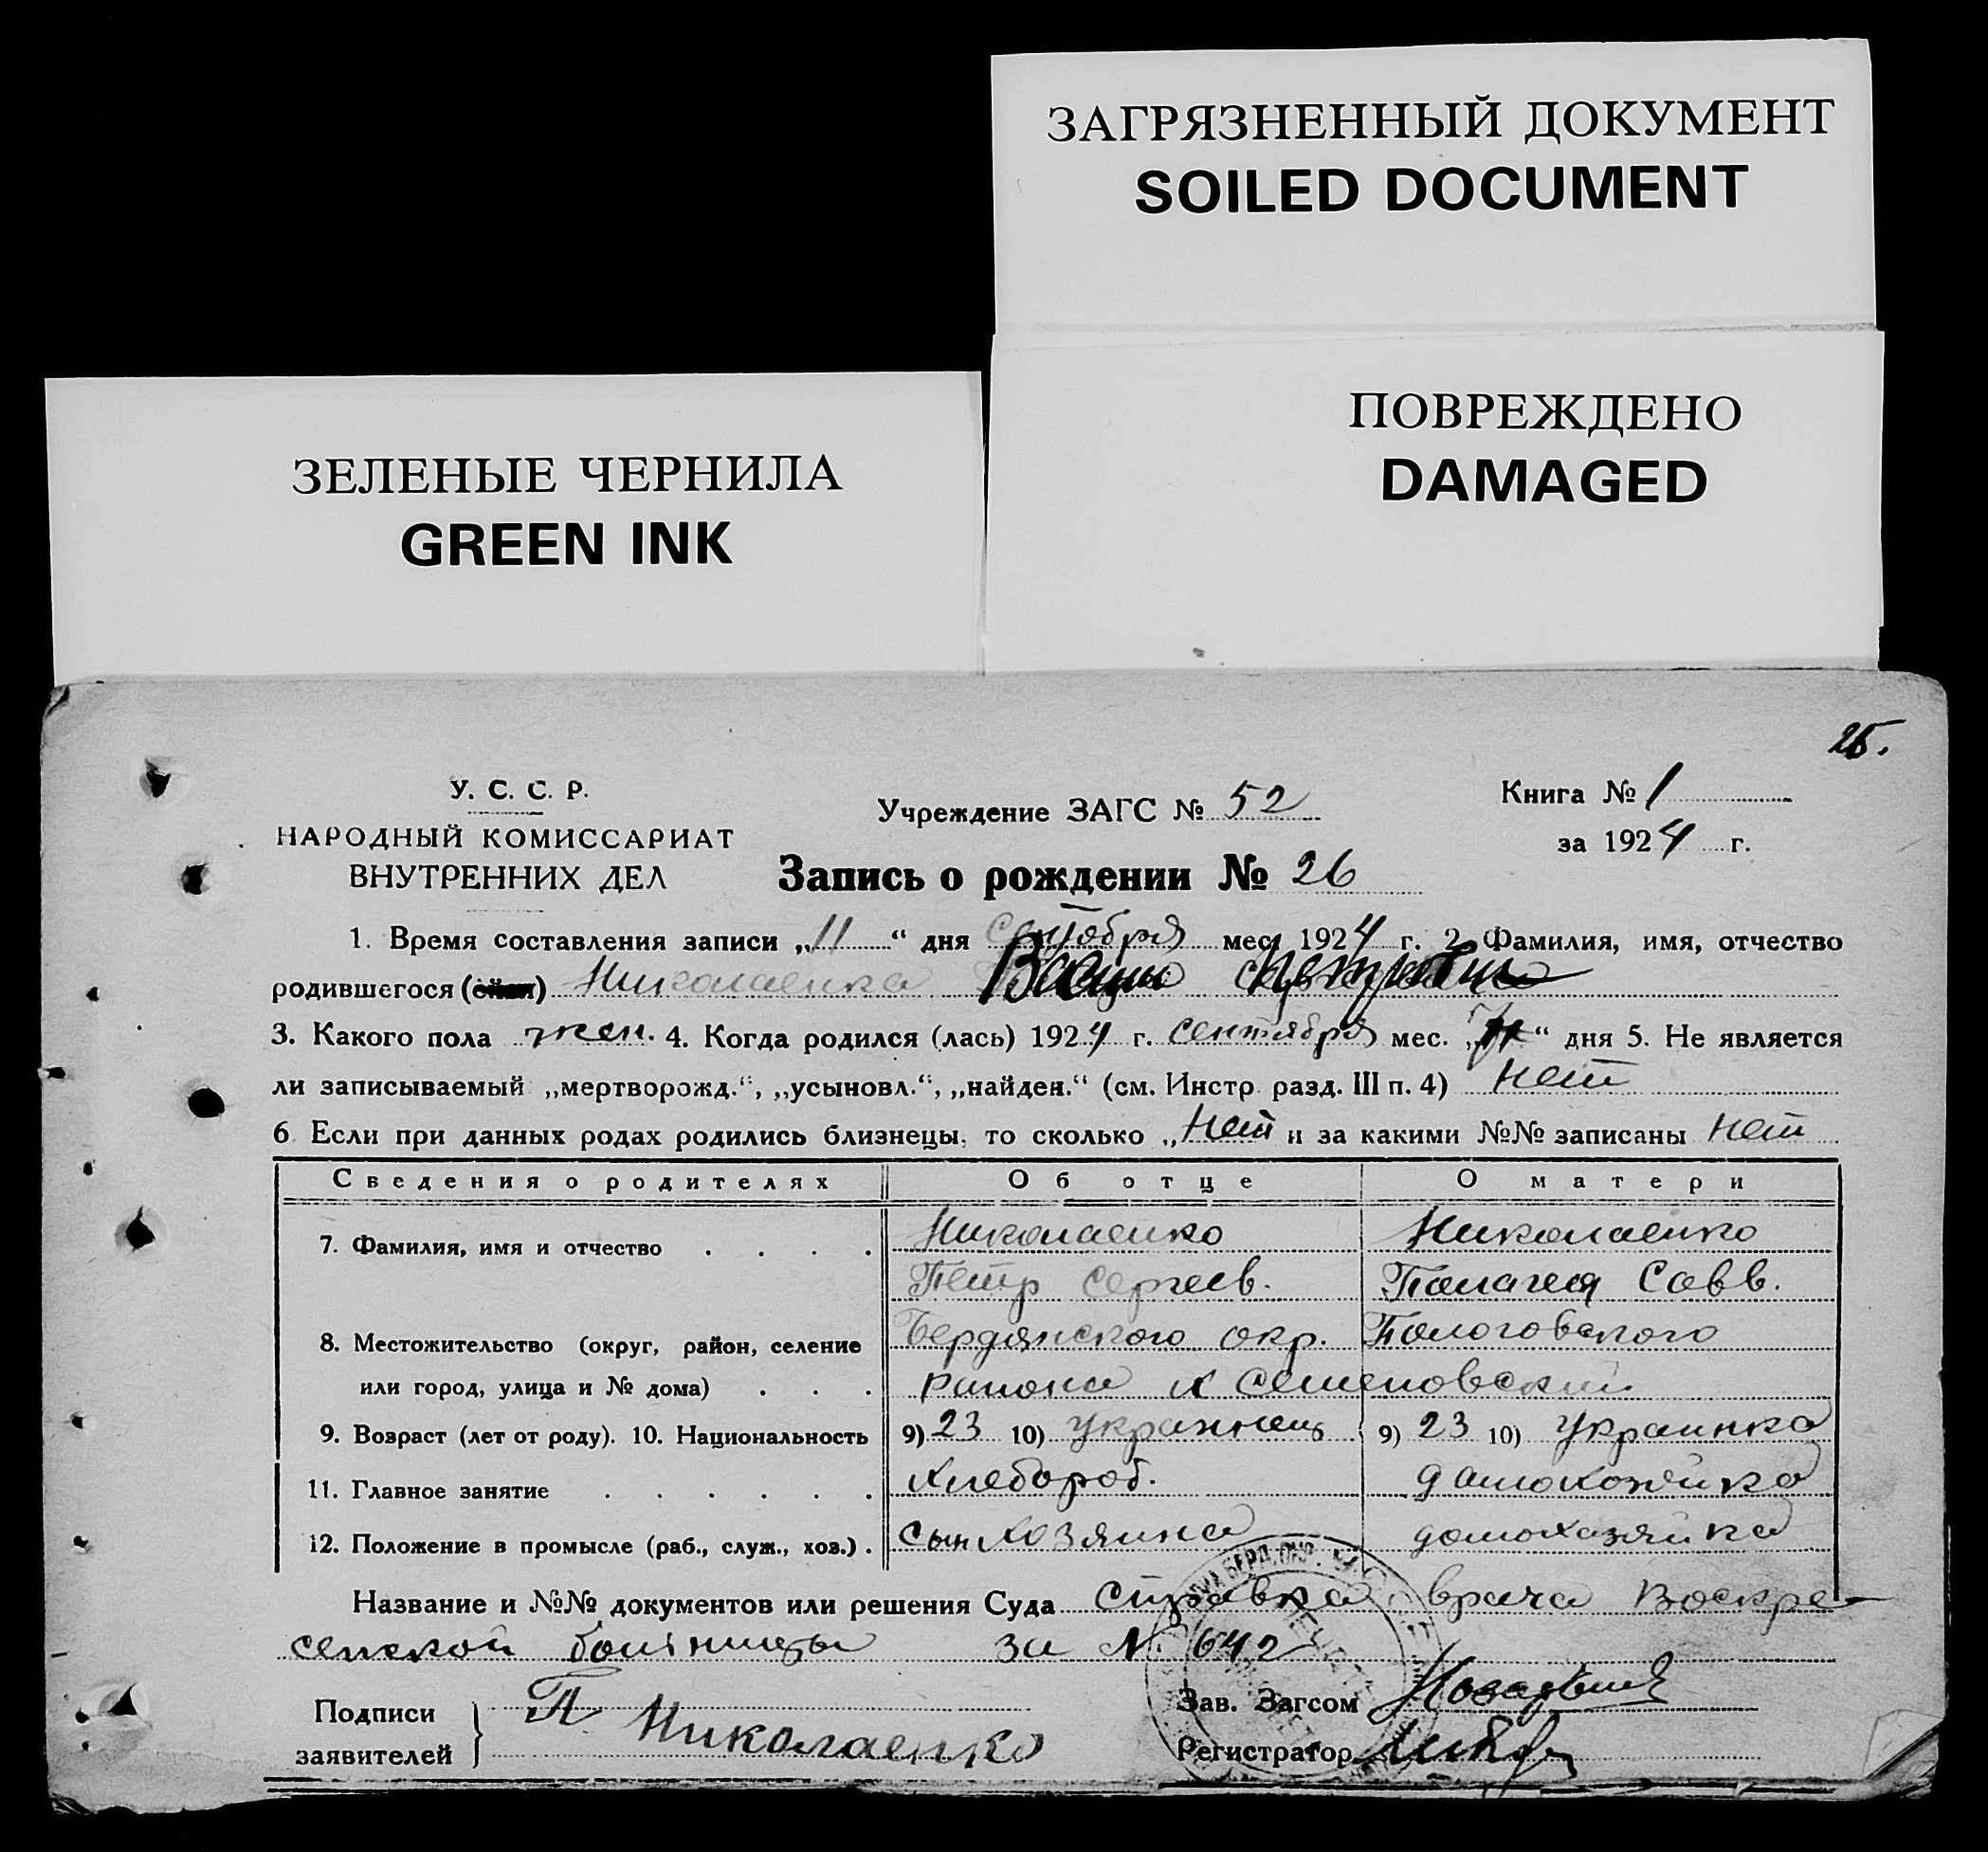 ЗАГРЯЗНЕННЫЙ ДОКУМЕНТ
SOILED DOCUMENT
ПОВРЕЖДЕНО
DAMAGED
ЗЕЛЕНЫЕ ЧЕРНИЛА
GREEN INK
У. С. С. Р.
НАРОДНЫЙ КОМИССАРИАТ
ВНУТРЕННИХ ДЕЛ
Учреждение ЗАГС № 52
Книга № 1
за 1924 г.
Запись о рождении № 26
1. Время составления записи „11“ дня сентября мес. 1924 г. 2. Фамилия, имя, отчество
родившегося Николаенко
3. Какого пола жен. 4. Когда родился (лась) 1924 г. сентября мес. „ “ дня 5. Не является
ли записываемый „мертворожд.“, „усыновл.“, „найден.“ (см. Инстр. разд. III п. 4) нет
6. Если при данных родах родились близнецы, то сколько „нет и за какими №№ записаны нет
Сведения о родителях Об отце О матери
7. Фамилия, имя и отчество . . . . Николаенко Николаенко
Петр Сергеев. Палагея Савв.
8. Местожительство (округ, район, селение Бердянского окр. Пологовского
или город, улица и № дома) . . . района х Семеновский
9. Возраст (лет от роду). 10. Национальность 9) 23 10) украинец 9) 23 10) украинка
11. Главное занятие . . . . . . хлебороб. домохозяйка
12. Положение в промысле (раб., служ., хоз.) . сын хозяина домохазяйка
Название и №№ документов или решения Суда справка врача Воскре-
сенской больницы за № 642
Подписи
заявителей } П. Николаенко
Зав. Загсом
Регистратор